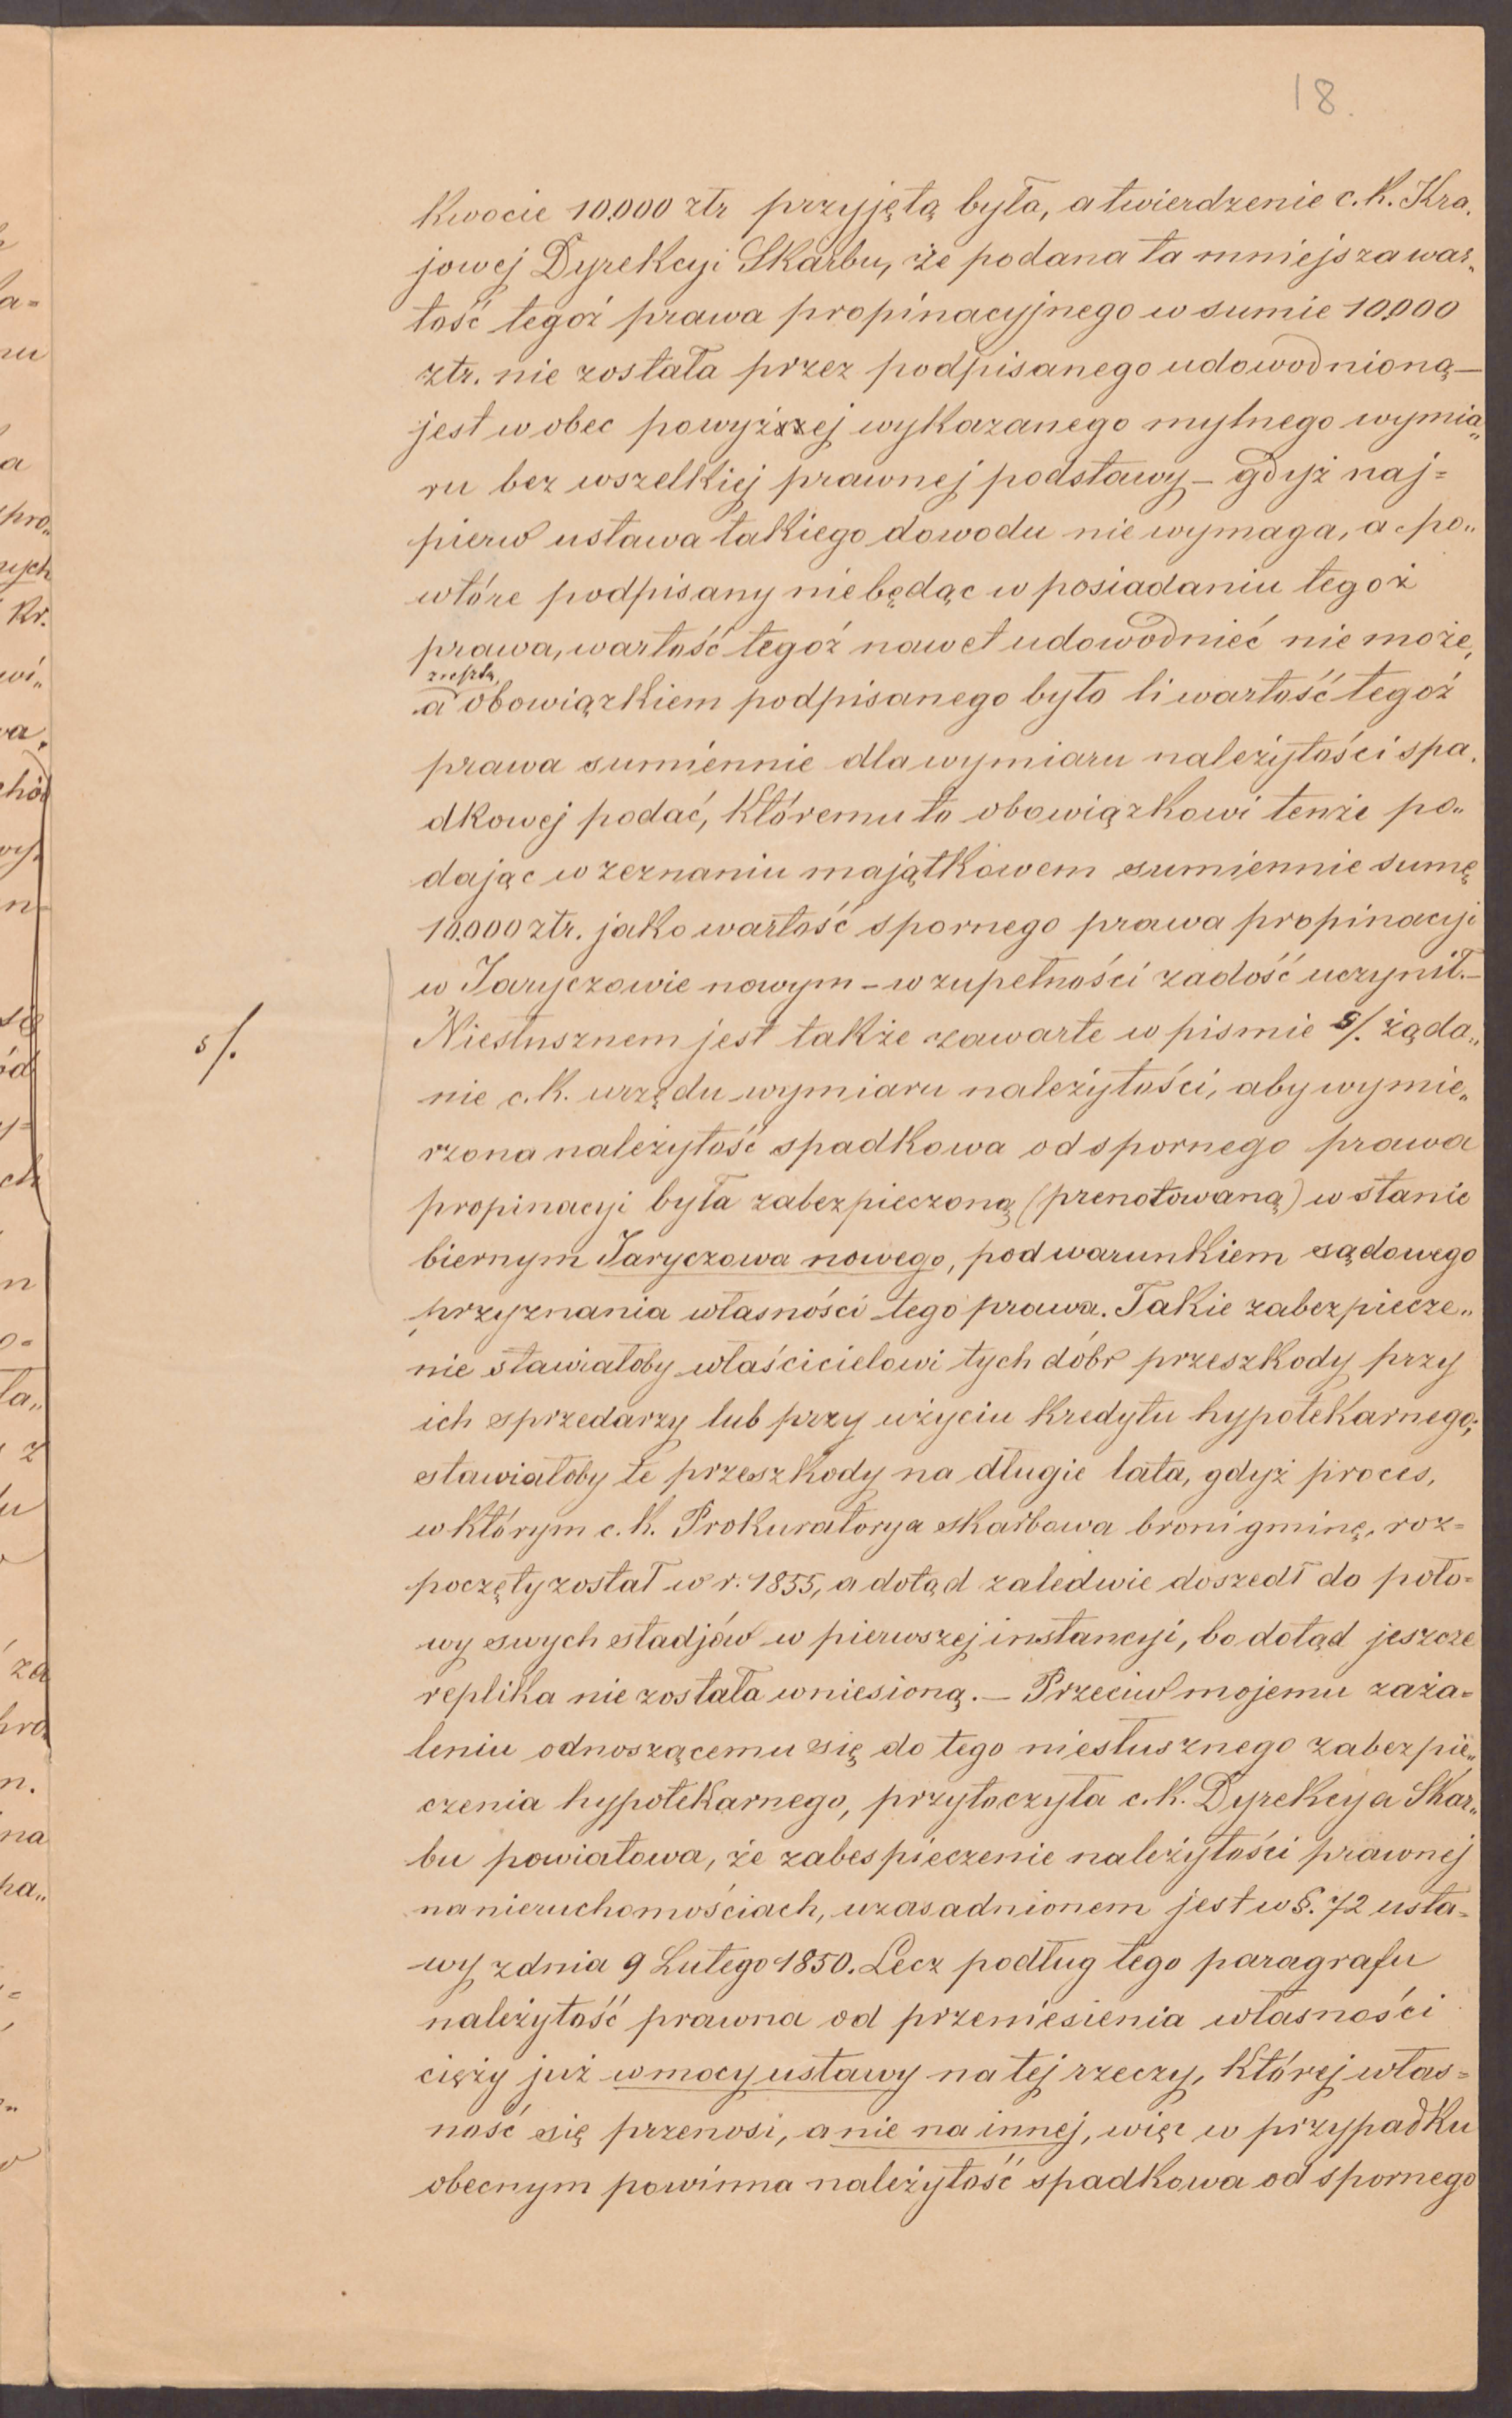 18.
kwocie 10.000 złr przyjętą była, a twierdzenie c. k. Kra„
jowej Dyrekcyi Skarbu, że podana ta mniejsza war„
tość tegoż prawa propinacyjnego w sumie 10.000
złr. nie została przez podpisanego udowodnioną —
jest wobec powyższej wykazanego mylnego wymia„
ru bez wszelkiej prawnej podstawy — gdyż naj=
pierw ustawa takiego dowodu nie wymaga, a po„
wtóre podpisany nie będąc w posiadaniu tegoż
prawa, wartość tegoż nawet udowodnieć nie może,
a obowiązkiem podpisanego było li wartość tegoż
prawa sumiennie dla wymiaru należytości spa„
dkowej podać, któremu to obowiązkowi tenże po„
dając w zeznaniu majątkowem sumiennie sumę
10.000 złr. jako wartość spornego prawa propinacyi
w Jaryczowie nowym — w zupełności zadość uczynił.—
5/.
Niesłusznem jest także zawarte w pismie 5/. żąda„
nie c. k. urzędu wymiaru należytości, aby wymie„
rzona należytość spadkowa od spornego prawa
propinacyi była zabezpieczoną (prenotowaną) w stanie
biernym Jaryczowa nowego, pod warunkiem sądowego
przyznania własności tego prawa. Takie zabezpiecze„
nie stawiałoby właścicielowi tych dóbr przeszkody przy
ich sprzedarzy lub przy użyciu kredytu hypotekarnego;
stawiałoby te przeszkody na długie lata, gdyż proces,
w którym c. k. Prokuratorya skarbowa broni gminę, roz=
poczęty został w r. 1855, a dotąd zaledwie doszedł do poło=
wy swych stadjów w pierwszej instancyi, bo dotąd jeszcze
replika nie została wniesioną. — Przeciw mojemu zaża=
leniu odnoszącemu się do tego niesłusznego zabezpie„
czenia hypotekarnego, przytoczyła c. k. Dyrekcya Skar„
bu powiatowa, że zabespieczenie należytości prawnej
na nieruchomościach, uzasadnionem jest w §. 72 usta=
wy z dnia 9 Lutego 1850. Lecz podług tego paragrafu
należytość prawna od przeniesienia własności
cięży już w mocy ustawy na tej rzeczy, której włas=
ność się przenosi, a nie na innej, więc w przypadku
obecnym powinna należytość spadkowa od spornego